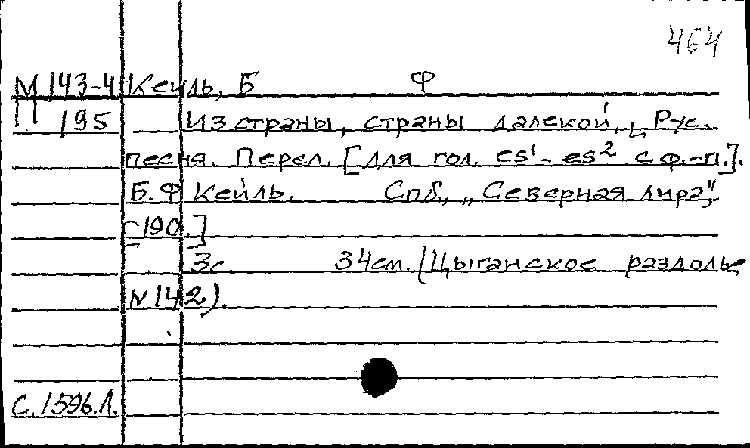 464
М 143-4 Кейль, Б Ф
195 Из страны, страны далекой, Рус.
песня. Перел. [для гол. es¹- es² с ф.-п.].
Б. Ф Кейль. Спб, „Северная лира",
[190.]
3с 34см. (Цыганское раздолье
N 142).
С. 1596.Л.